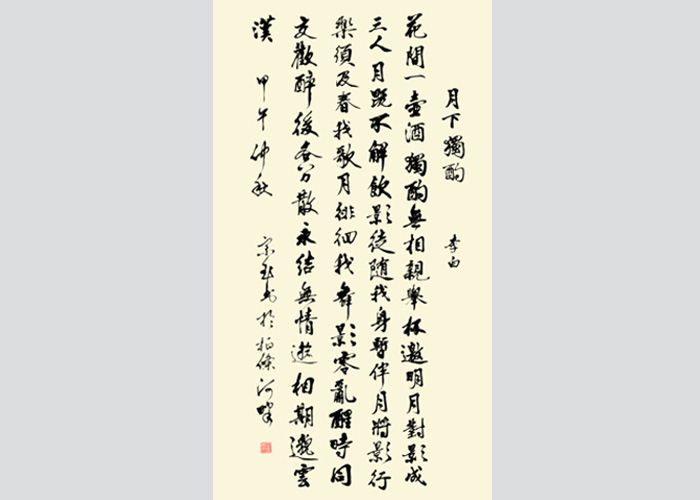 月下獨酌 李白
花間一壺酒獨酌無相親舉杯邀明月對影成
三人月既不解飲影徒隨我身暫伴月將影行
樂須及春我歌月徘徊我舞影零亂醒時同
交歡醉後各分散永結無情遊相期邈雲
漢 甲午仲秋 書於柏條河畔